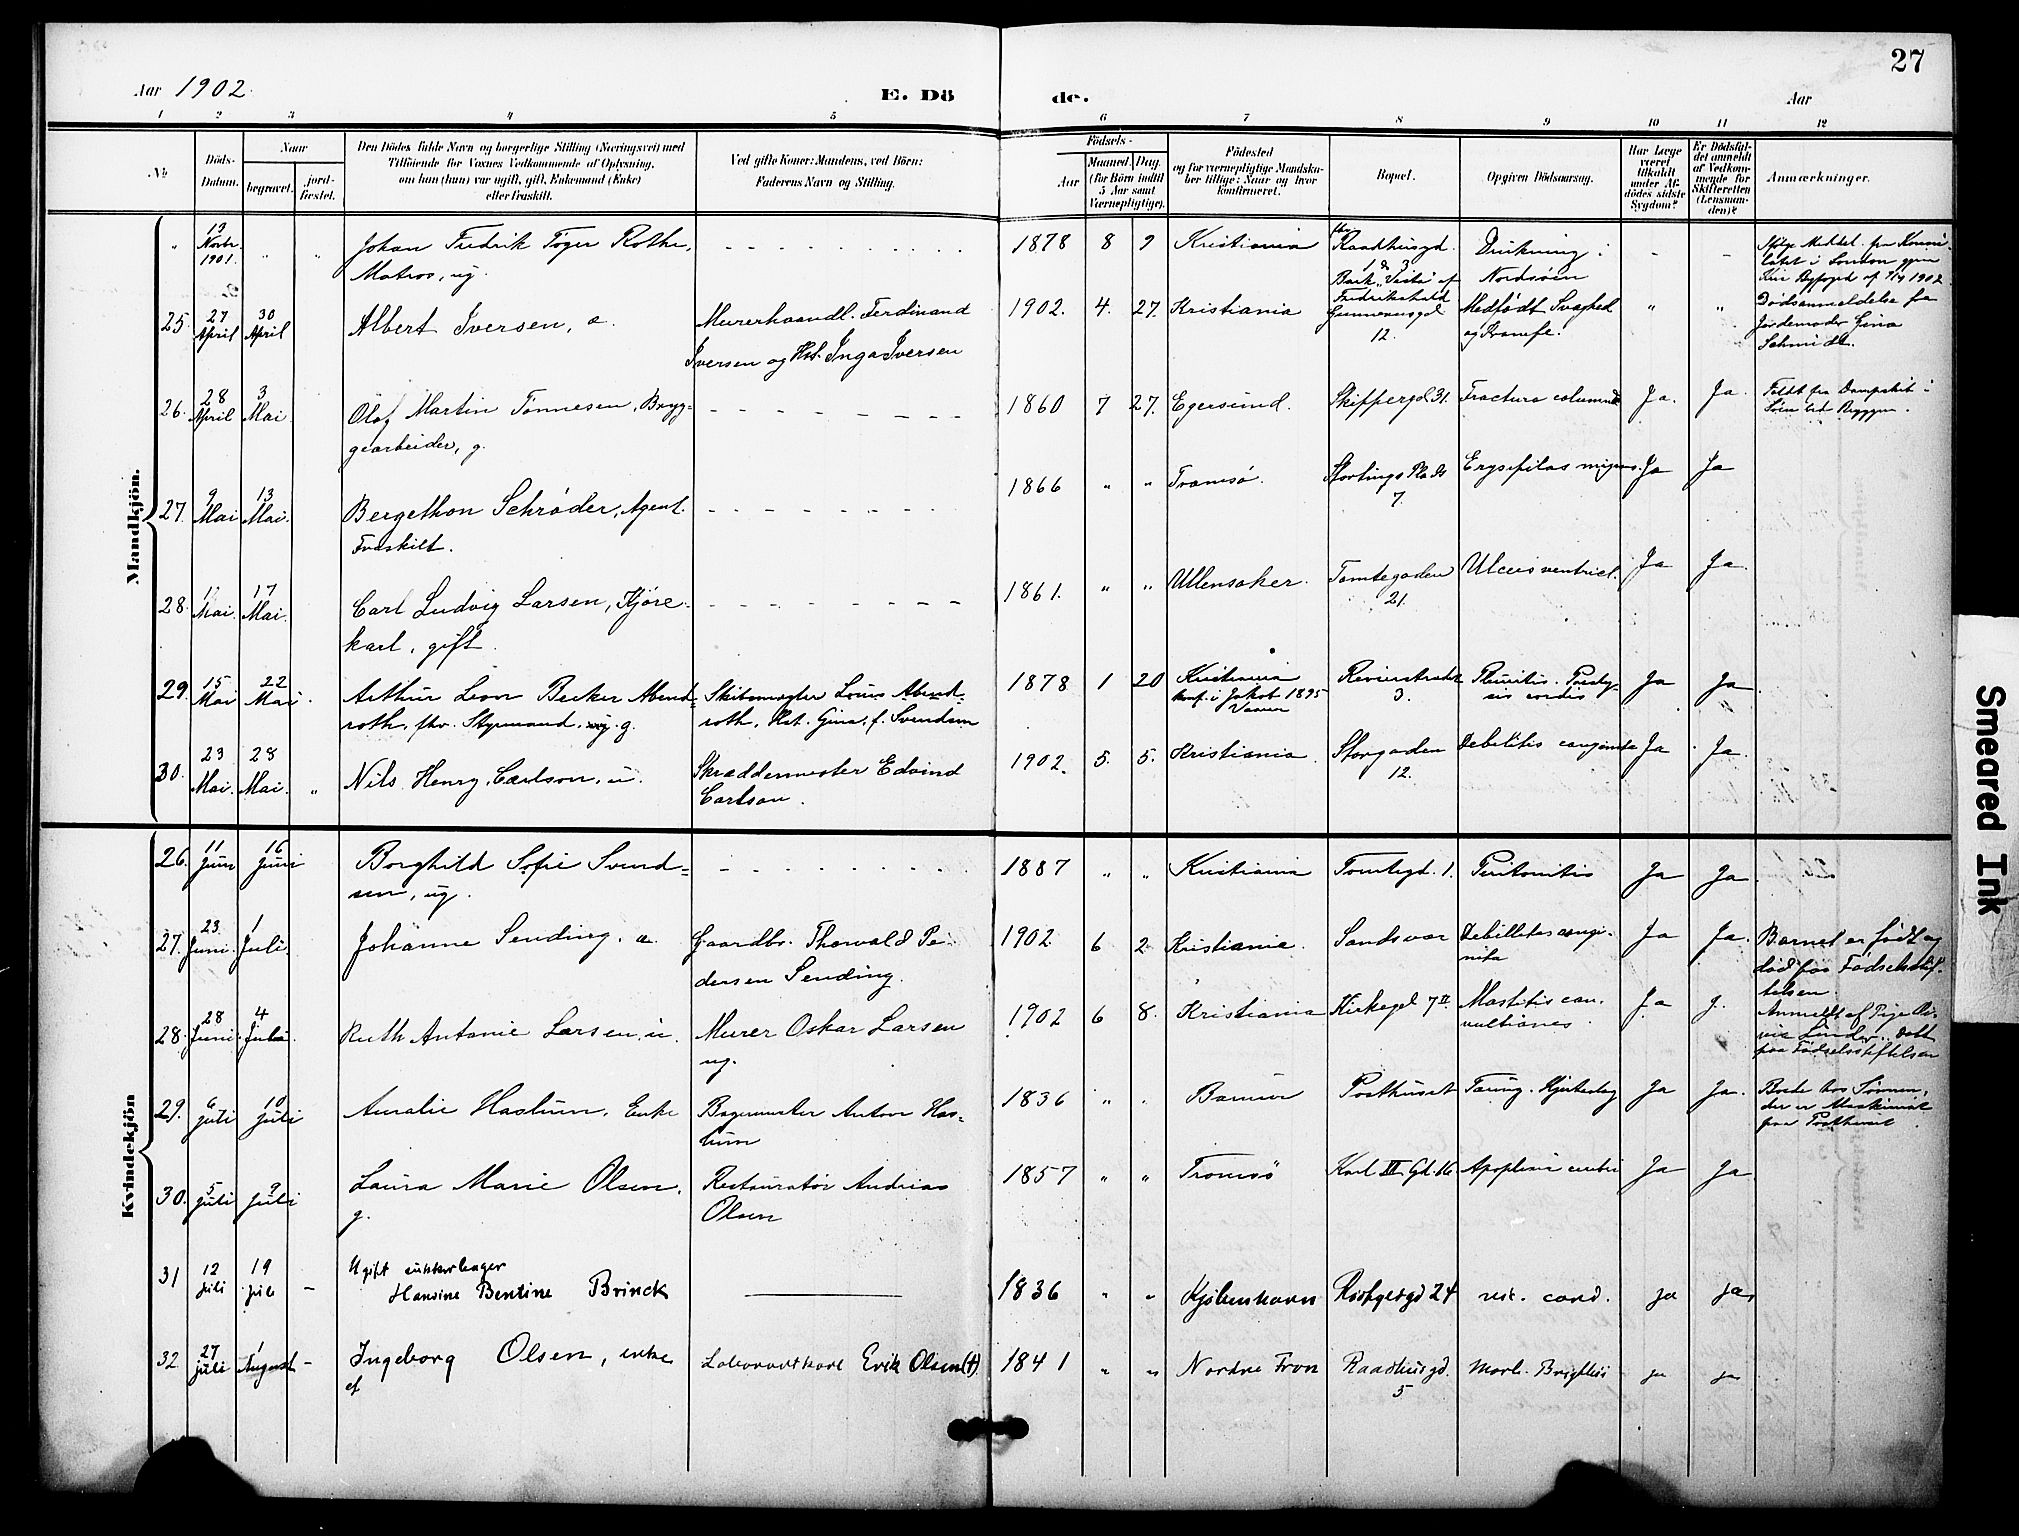 27
Aar 1902.
E. Dö de.
Aar
1 2 3 4 5 6 7 8 9 10 11 12
No
Döds-Datum.
Naar
begravet.
jord-fæstet.
Den Dödes fulde Navn og borgerlige Stilling (Næringsvei) med
Tilföiende for Voxnes Vedkommende af Oplysning,
om han (hun) var ugift, gift, Enkemand (Enke)
eller fraskilt.
Ved gifte Koner: Mandens, ved Börn:
Faderens Navn og Stilling.
Födsels-
Aar
Maaned. Dag.
(for Börn indtil
5 Aar samt
Værnepligtige).
Födested
og for værnepligtige Mandska-
ber tillige: Naar og hvor
konfirmeret.
Bopæl.
Opgiven Dödsaarsag.
Har Læge
været
tilkaldt
under Af-
dödes sidste
Sygdom?
Er Dödsfal-
det anmeldt
af Vedkom-
mende for
Skifteretten
(Lensman-
den)?
Anmærkninger.
Mandkjön.
" 19 Novbr. 1901. " "
Johan Fredrik Töger Rothe,
Matros, ug.
1878 8 9 Kristiania
Raadhusgd.
Drukning i
Nordsöen
25. 27 April 30 April
Albert Iversen, a.
Murerhaandl. Ferdinand
Iversen og Hst. Inga Iversen
1902. 4. 27. Kristiania
Fredrikshald
Gunnerusgd
12.
Medfødt Svaghed
" "
Dødsanmeldelse fra
Jordemoder Gina
Schmidt.
26. 28 April 3 Mai
Olaf Martin Tönnesen, Bryg-
gearbeider, g.
1860 7 27. Egersund. Skippergd. 31. Fractura
Ja. Ja.
Faldt fra Dampskib i
Söen ved Bryggen.
27. 9 Mai 13 Mai.
Bergethon Schrøder, Agent.
Fraskilt.
1866 " " Tromsø. Stortings Plads
7.
Erysipelas migrans. Ja Ja
28. Mai. 17 Mai.
Carl Ludvig Larsen, Kjøre-
karl, gift.
1861. " " Ullensaker. Tomtegaden
21.
Ulcus ventricl. Ja Ja.
29. 15 Mai 22 Mai.
Arthur Leon Becker Abend-
roth, fhv. Styrmand, g.
Skibsmægler Louis Abend-
roth, Hst. Gina, f. Svendsen
1878 1 20 Kristiania
konf. i Jakob 1895
Vaaren
3.
Pleuritis. Paraly-
sis cordis
Ja Ja
30. 23 Mai. 28 Mai. "
Nils Henry Carlson, u.
Skræddermester Edvind
Carlson.
1902. 5. 5. Kristiania. Storgaden
12.
Debilitis congenita Ja. Ja.
Kvindekjön
26. 11 Juni 16 Juni
Borghild Sofie Svend-
sen, ug.
1887 " " Kristiania Tomtegd. 1. Peritonitis Ja Ja
27. 23. Juni. 1 Juli.
Johanne Sending, a.
Gaardbr. Thorvald Pe-
dersen Sending.
1902. 6 2. Kristiania. Sandsvær Debilitas conge-
nita
Ja Ja.
Barnet er født og
død paa Fødselsstif-
telsen.
28. 28 Juni. 4 Juli
Ruth Antonie Larsen, u.
Murer Oskar Larsen
ug.
1902 6 8. Kristiania Kirkegd 7 II Mastitis con-
vultiones.
Ja
Anmeldt af Pige
Dødt
paa Fødselsstiftelsen
29. 6 juli 10 juli
Amalie Haslum, Enke
Bagermester Anton Has-
lum
1836 " . Bærum Posthuset Tæring. Hjerteslag Ja Ja.
Boede hos Sønnen,
der er Maskinist
paa Posthuset.
30. 5 juli 9 juli
Laura Marie Olsen,
g.
Restauratör Andreas
Olsen
1857 " " Tromsö Karl XII Gd. 16. Apoplexia cerebri Ja Ja
31 12 juli 19 juli –
Ugift
Hansine Bentine Brinck
1836 " " Kjøbenhavn 24 vit. cord. ja ja,
32 27 juli 1 August –
Ingeborg Olsen, enke
af
Erik Olsen (†)
1841 " " Nordre Fron Raadhusgd.
5
Morb. Brightii ja ja
Smeared Ink